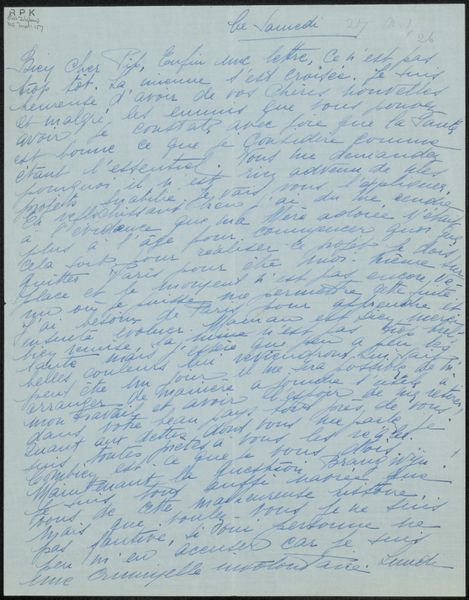 R P K
Ce Samedi
26
Bien cher Pip, Enfin une lettre, Ce n'est pas
trop tôt. La mienne s'est croisée. Je suis
heureuse d'avoir de vos chères nouvelles
et malgré les ennuis que vous pouvez
avoir je constate avec joie que la santé
est bonne ce que je considère comme
étant l'essentiel. Vous me demandez
pourquoi il n'est rien advenu de mes
projets je vais vous l'expliquer.
En réfléchissant bien j'ai du me rendre
à l'évidence que ma Mère adorée n'était
plus à l'âge pour commencer quoi que
cela soit pour réaliser ce projet je dois
quitter Paris pour être moi-même sur
place et le moment n'est pas encore
où je puisse me permettre cette
j'ai besoin de Paris pour apprendre et
ensuite évoluer. Maman est bien
bien revenue, la mine n'est pas très
santé mais j'espère que peu à peu les
belles couleurs lui reviendront. Qui sait
peut être un jour il me sera possible de m'
arranger de manière à
mon travail et avoir l'espoir de me retirer
dans votre beau pays tout près de vous.
Quant aux dettes dont vous me parlez je
suis toute prête à vous les régler.
Combien est-ce que je vous dois!
Maintenant la question
Je suis tout aussi navrée que
vous de cette malheureuse histoire,
mais que voulez vous je ne suis
pas fautive, si donc personne ne
peu m'en accuser car je suis
une criminelle involontaire.